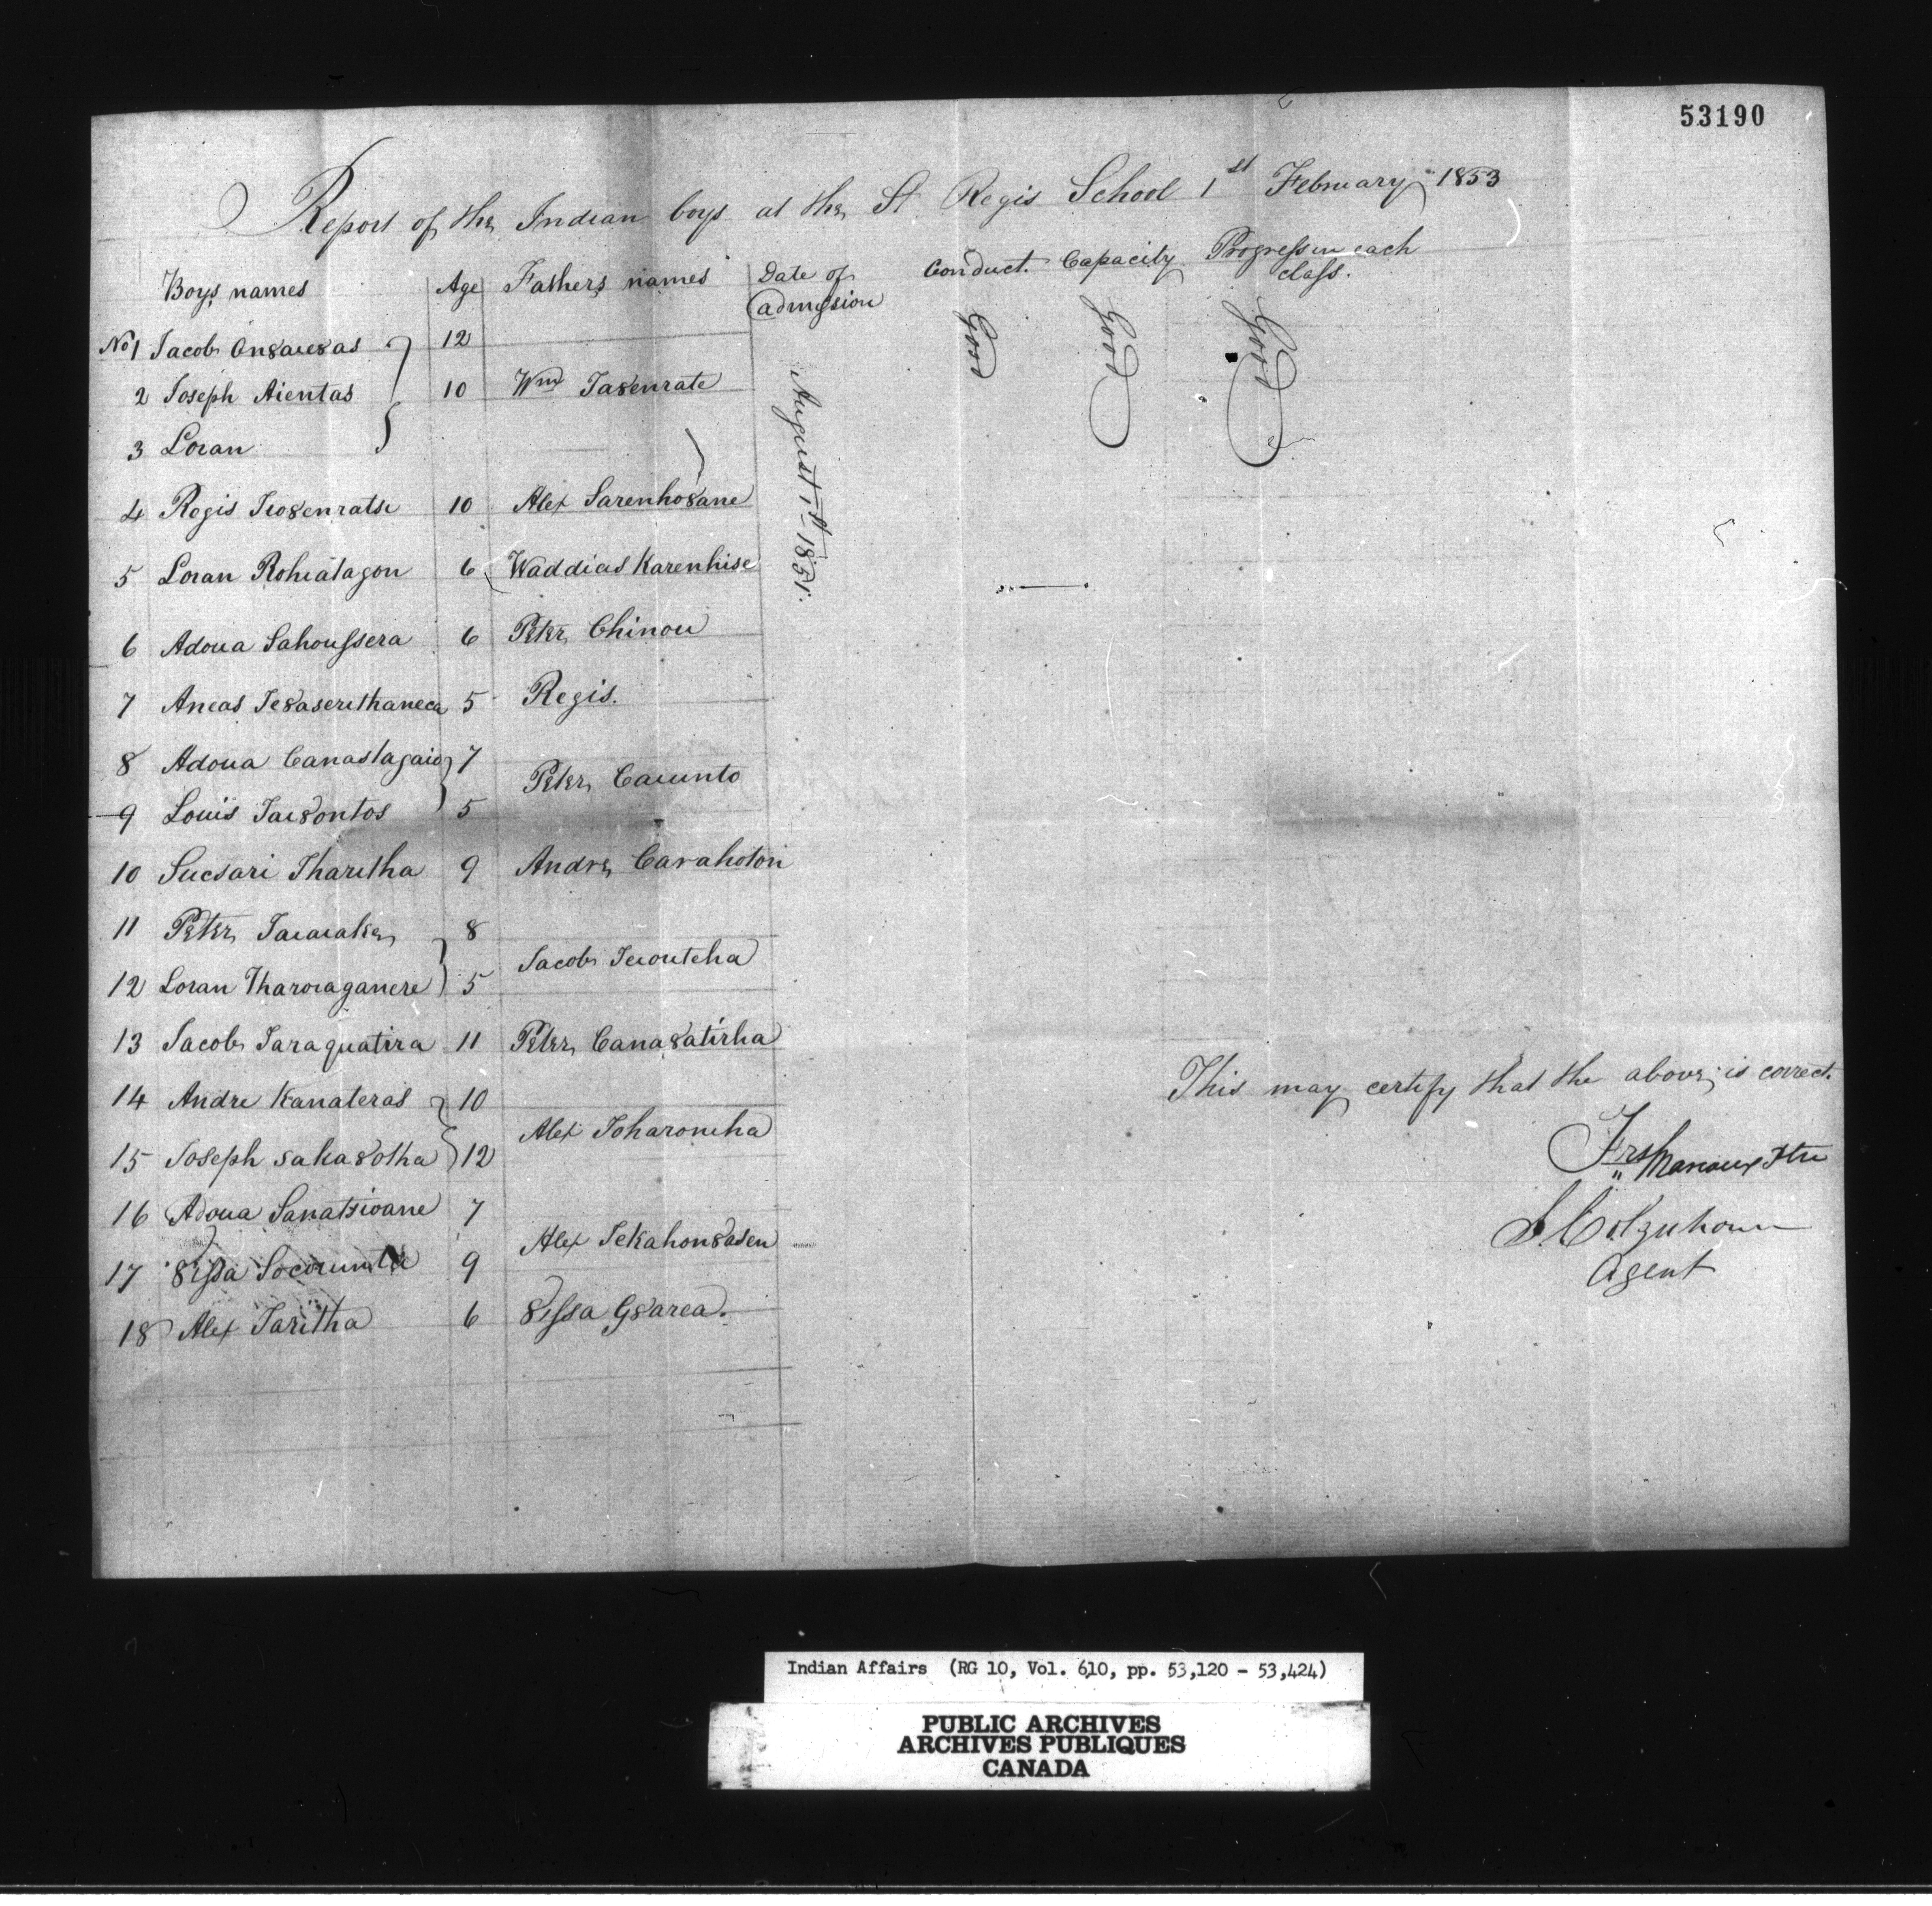 53190
Report of the Indian boys at the St Regis School 1st February 1853
Boys names Age Fathers names Date of admission Conduct. Capacity Progress in each class.
Good Good Good
August 1st 1851.
No 1 Jacob On8aie8as 12
2 Joseph Aientas 10 Wm Ta8enrate
3 Loran
4 Regis Tio8enratse 10 Alex Sarenho8ane
5 Loran Rohiatagon 6 Waddias Karenhise
6 Adoua Sahoussera 6 Peter Chinou
7 Aneas Te8aserethaneca 5 Regis.
8 Adoua Canastagaio 7
Peter Caiunto
9 Louis Tai8ontos 5
10 Sucsari Tharetha 9 Andre Carahoton
11 Peter Taiaiake 8
Jacob Teiouteha
12 Loran Tharoiaganere 5
13 Jacob Taraquatira 11 Peter Cana8atirha
14 Andre Kanateras 10
Alex Toharonicha
15 Joseph saka8otha 12
16 Adoua Sanatsioane 7
Alex Tekahon8asen
17 8issa 9
18 Alex Taritha 6 8issa G8area.
This may certify that the above is correct.
Frs Marcoux Ptre
S Colquhoun
Agent
Indian Affairs (RG 10, Vol. 610, pp. 53,120 - 53,424)
PUBLIC ARCHIVES
ARCHIVES PUBLIQUES
CANADA